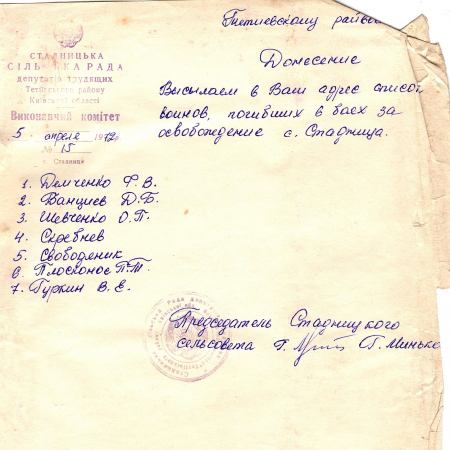 Тетиевскому
СТАДНИЦЬКА
СІЛЬСЬКА РАДА
депутатів трудящих
Тетіївського району
Київської області
Виконавчий комітет
5 апреля 1972
№ 15
с. Стадниця
Донесение
Высылаем в Ваш адрес список
воинов, погибших в боях за
освобождение с. Стадница.
1. Демченко Ф. В.
2. Ванциев Д. Б.
3. Шевченко О. П.
4. Скребнев
5. Свободеник
6. Плосконос П. Т.
7. Гуркин В. Е.
Председатель Стадницкого
сельсовета Г. Минько